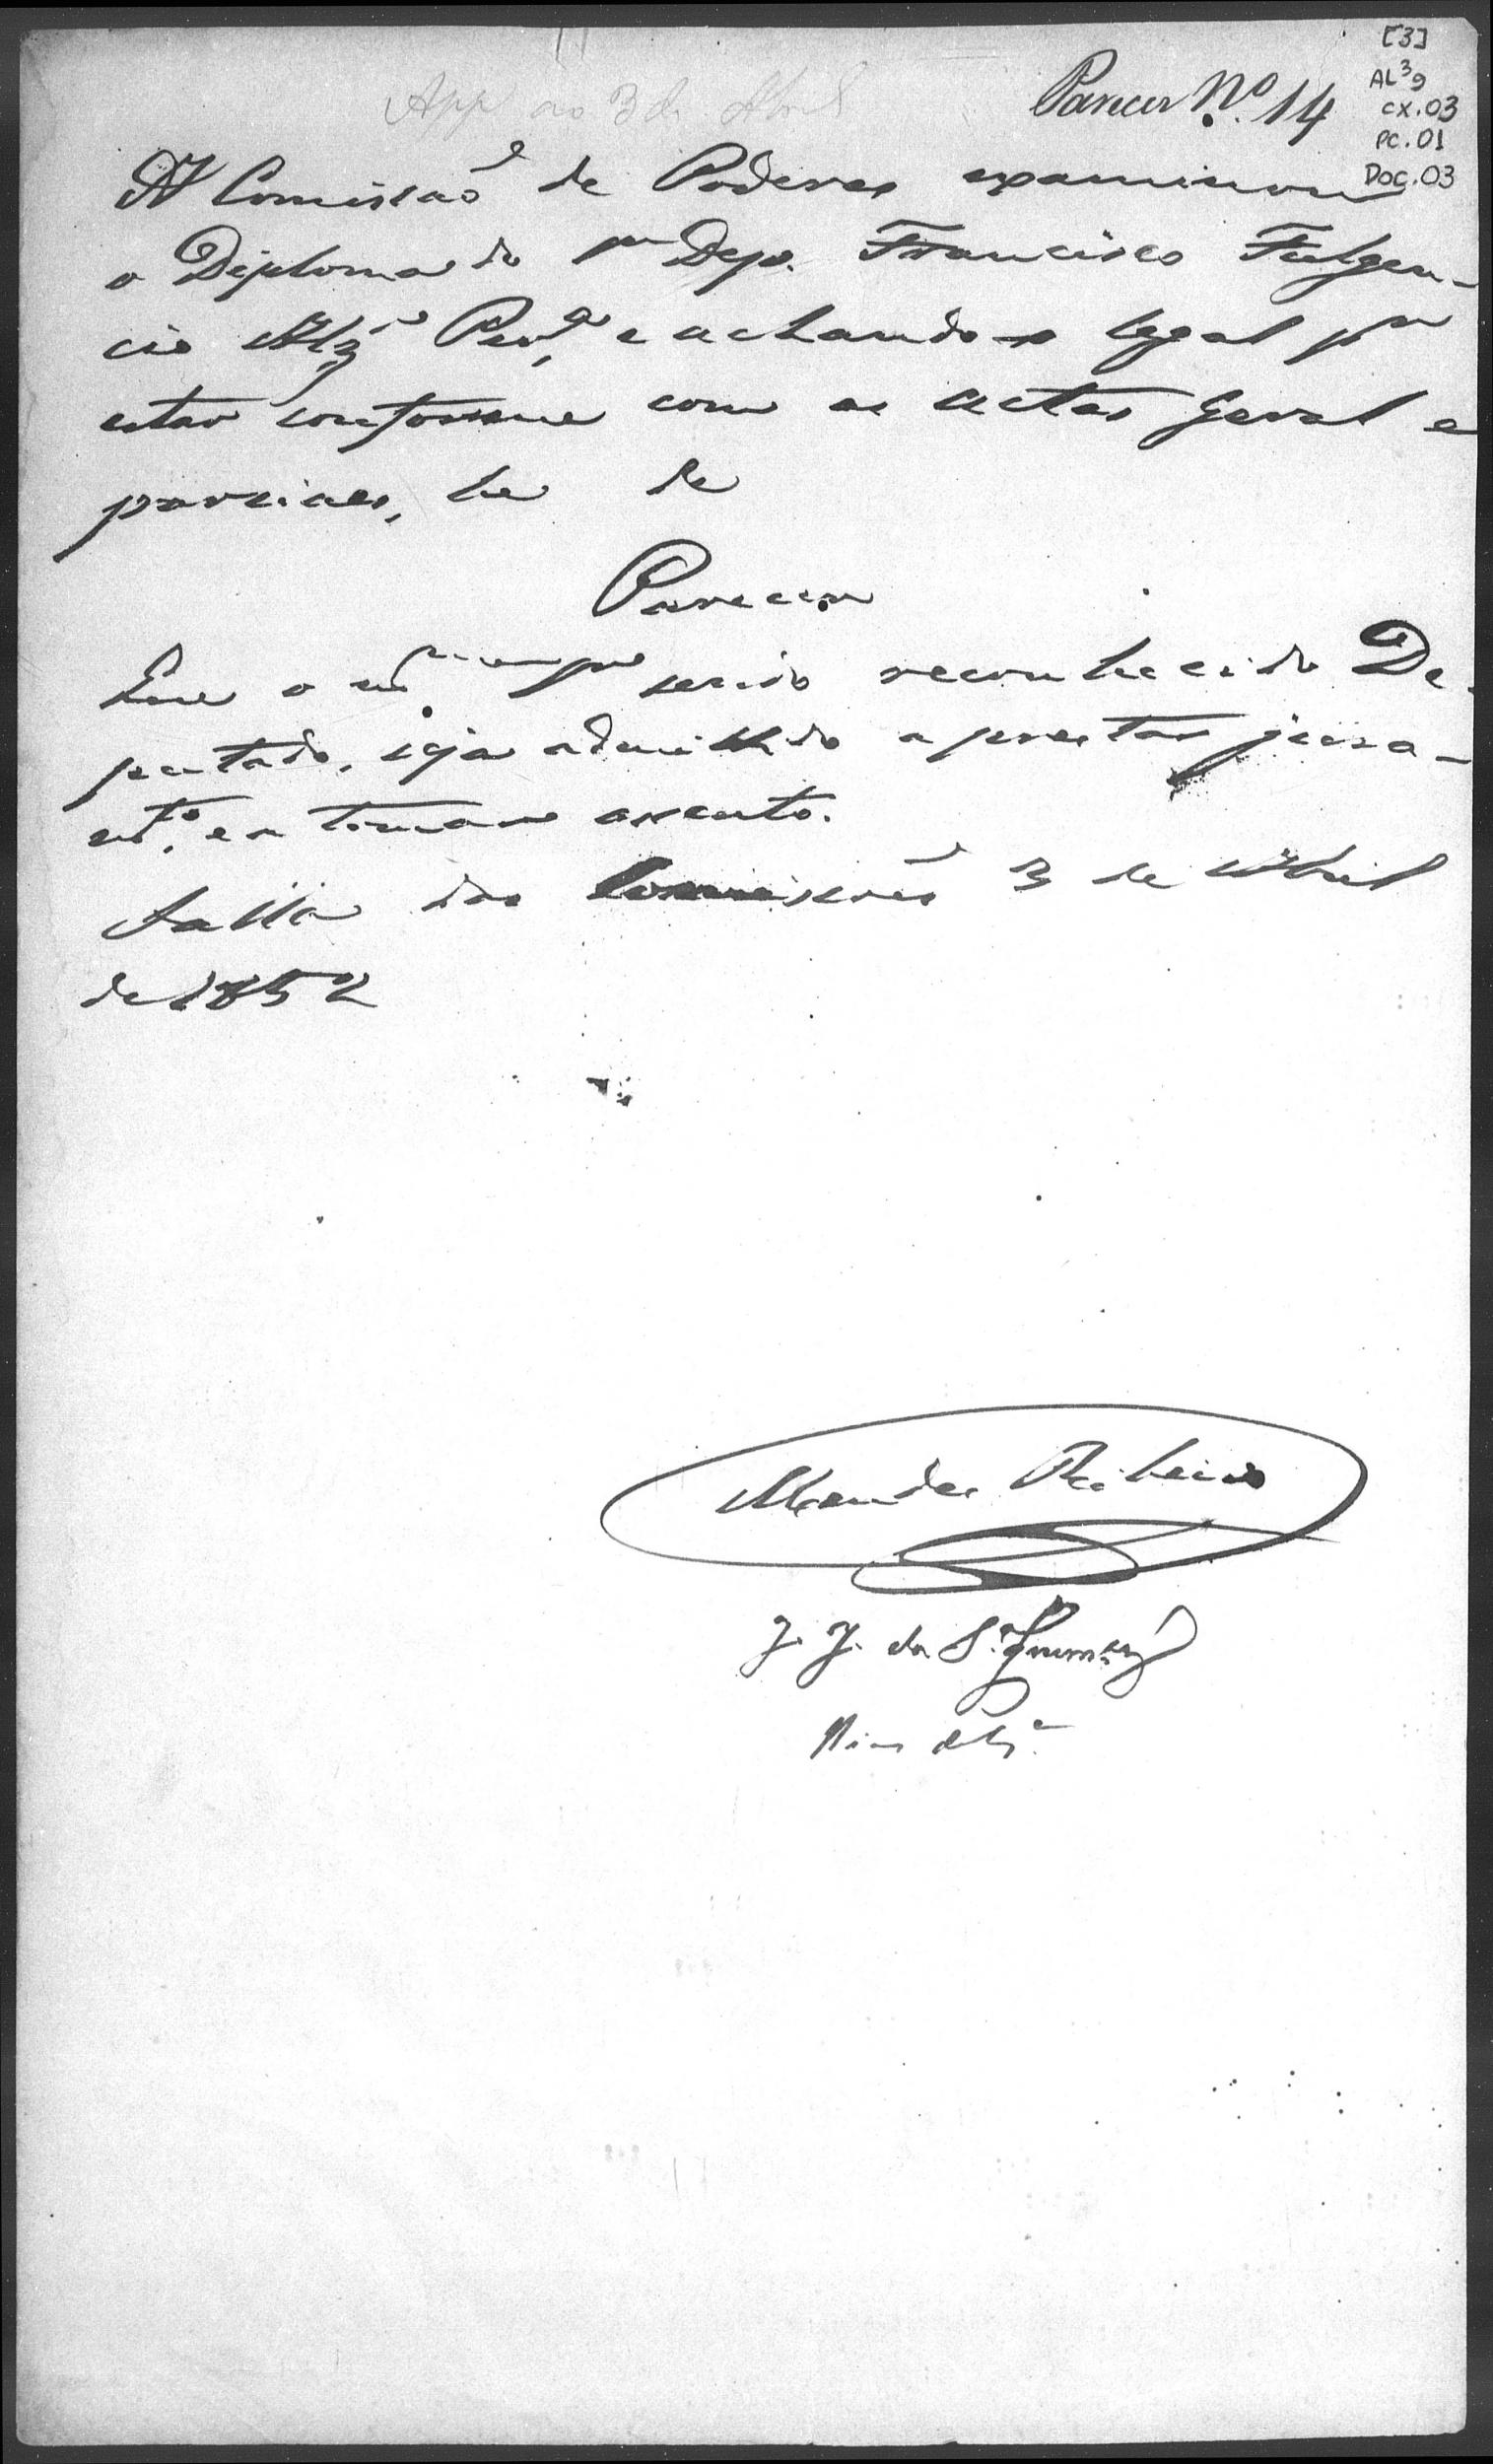 [3]
AL³9
CX.03
PC.01
DOC.03
App ao 3 de Abril
Parecer Nº 14
A Comissaõ de Poderes examinou
o Diploma do Dep. Francisco Fulgen-
cio e achando-o legal pr
estar conforme com as actas geral e
parciaes, he de
Parecer
Que o sendo reconhecido De-
putado, seja admittido a prestar jura-
mto. e a tomar assento.
Salla das Comissoẽs 3 de Abril
de 1852
Mendes Ribeiro
J. J. da S.